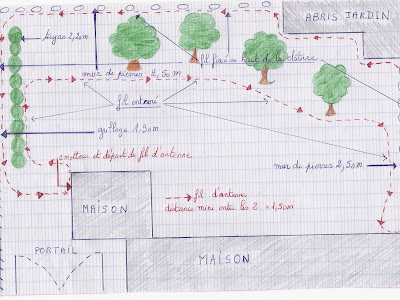 ABRIS JARDIN
tuyas 2,20m
fil fixé en haut de la clôture
mur de pierres 2,50m
fil enterré
grillage 1,30m
emetteur et départ du fil d'antenne
mur de pierres 2,50m
fil d'antenne
distance mini entre les 2 = 1,50m
MAISON
PORTAIL
MAISON